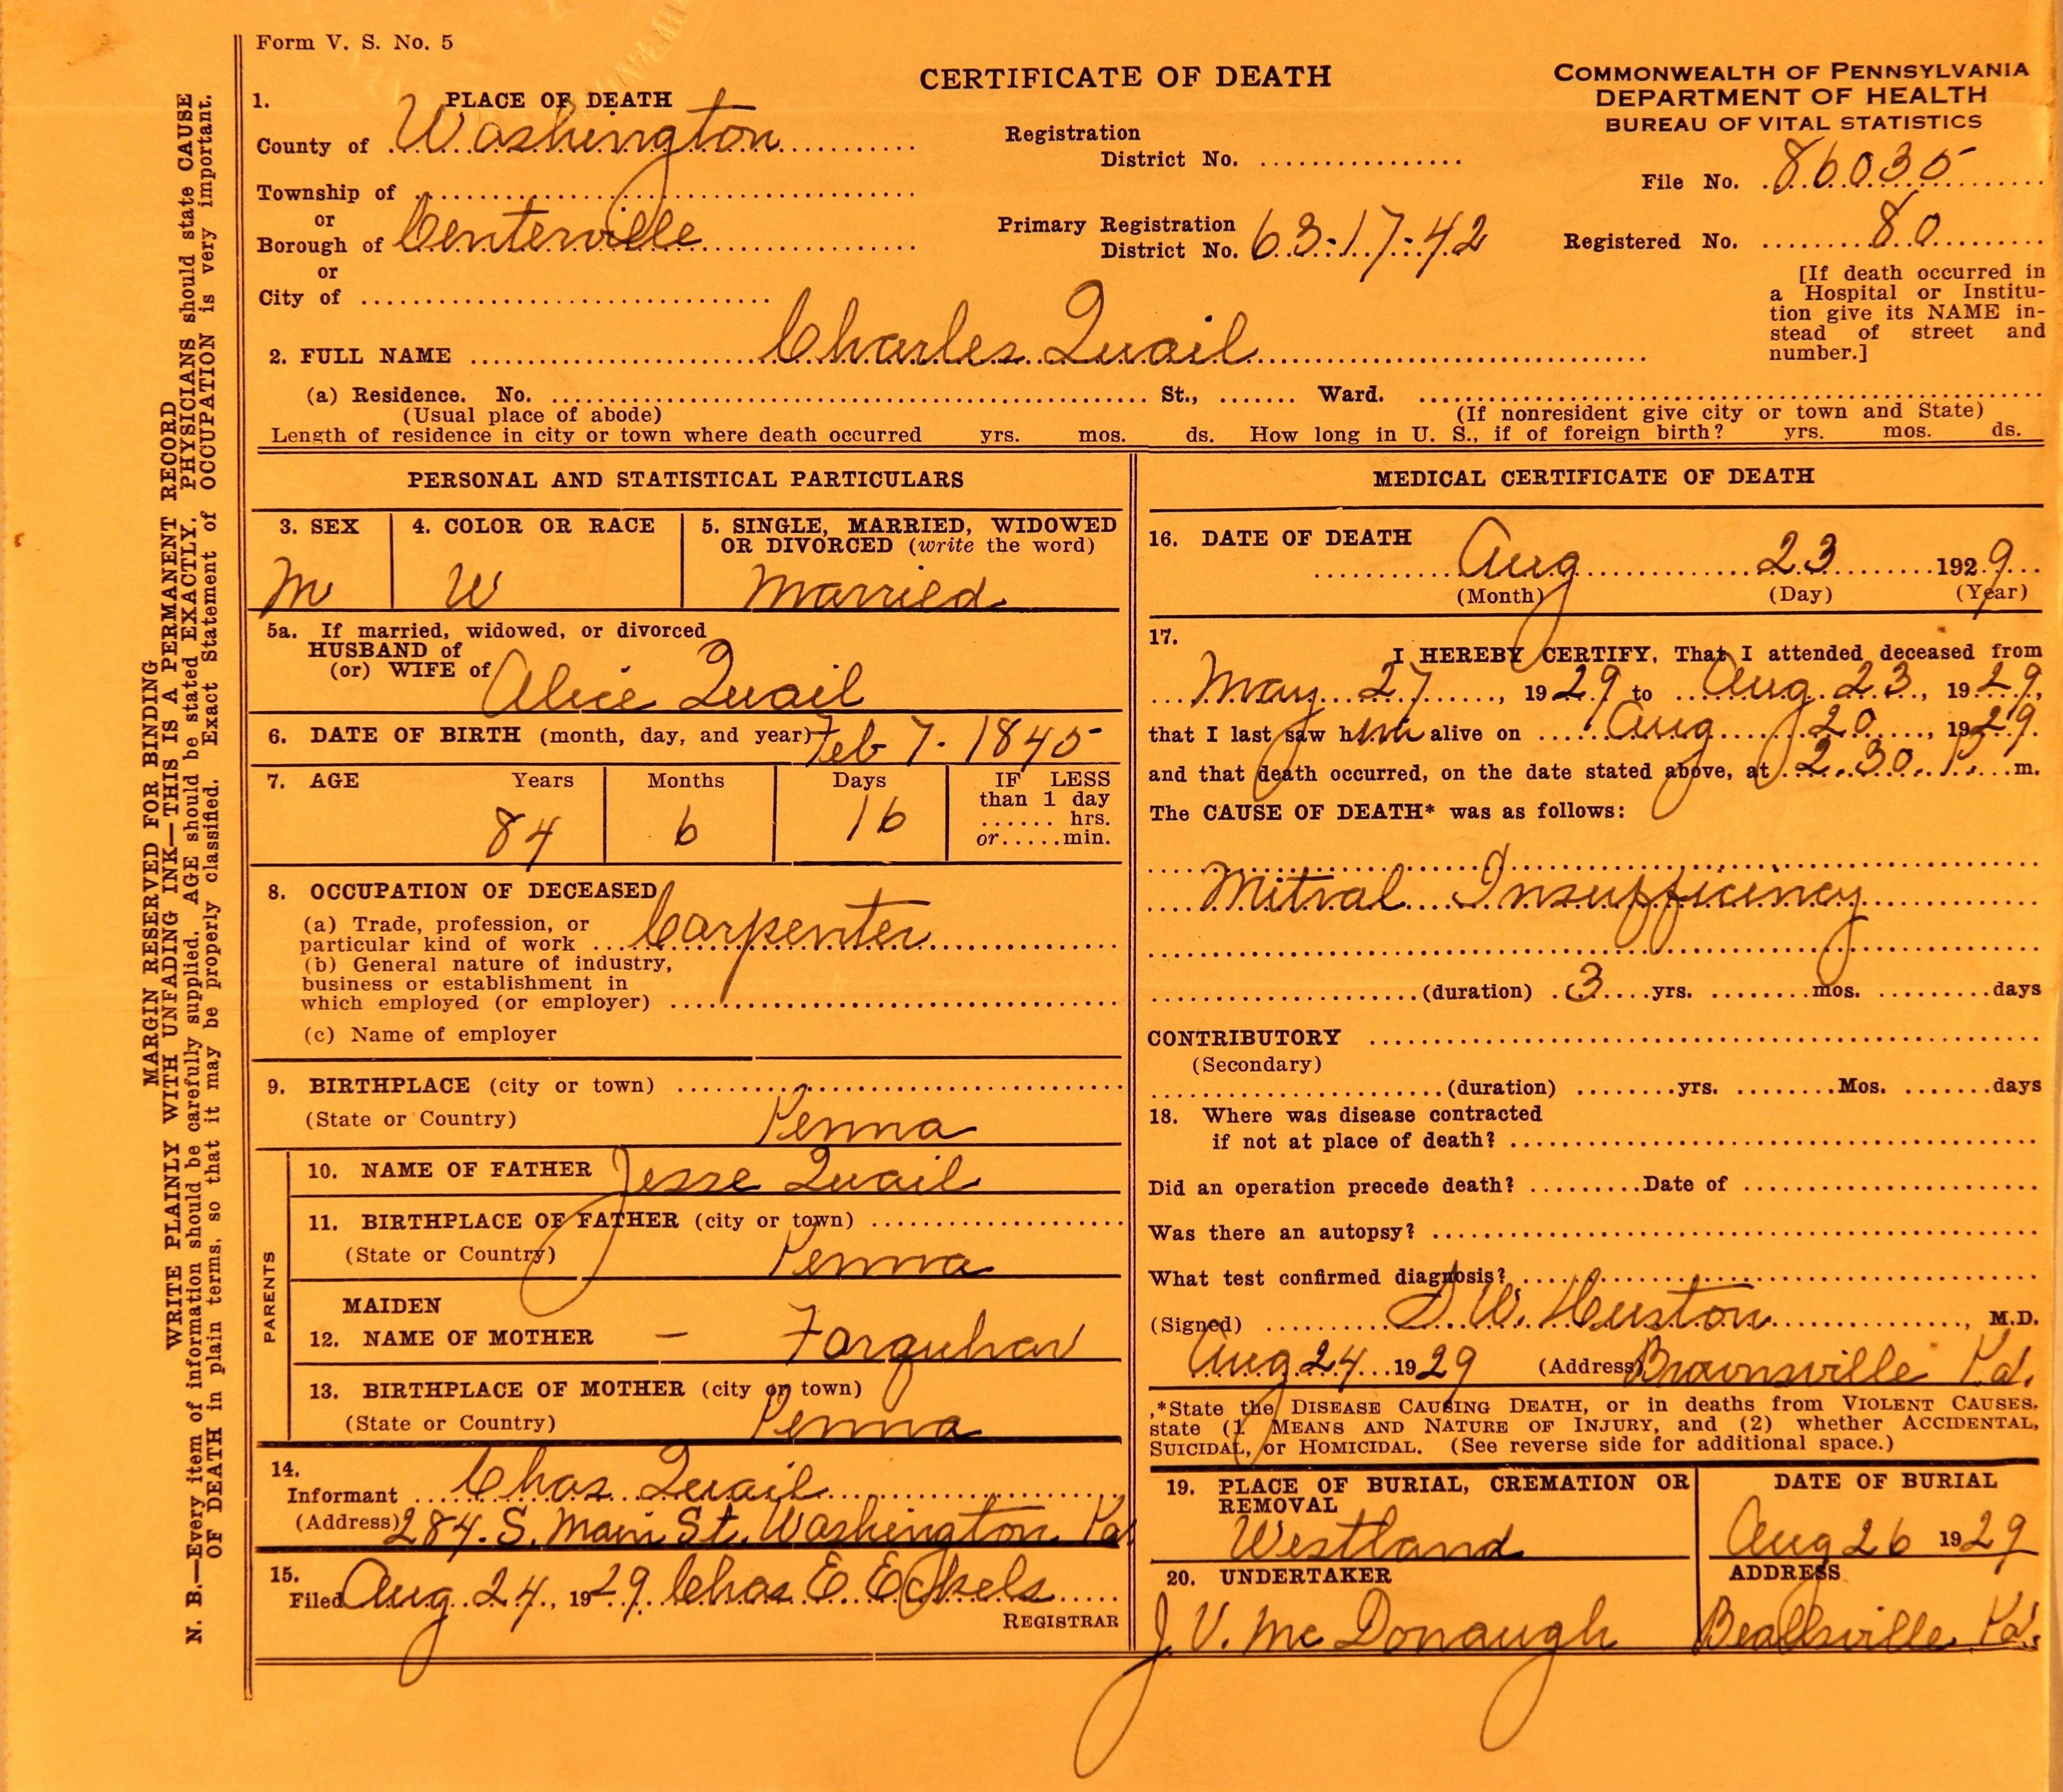 Form V. S. No. 5
CERTIFICATE OF DEATH
COMMONWEALTH OF PENNSYLVANIA
DEPARTMENT OF HEALTH
BUREAU OF VITAL STATISTICS
1. PLACE OF DEATH
County of Washington
Township of
or
Borough of Centerville
or
City of
Registration
District No.
Primary Registration
District No. 63-17-42
File No. 86035
Registered No. 80
[If death occurred in
a Hospital or Institu-
tion give its NAME in-
stead of street and
number.]
2. FULL NAME Charles Quail
(a) Residence. No. St., Ward.
(Usual place of abode) (If nonresident give city or town and State)
Length of residence in city or town where death occurred yrs. mos. ds. How long in U. S., if of foreign birth? yrs. mos. ds.
PERSONAL AND STATISTICAL PARTICULARS
3. SEX
M
4. COLOR OR RACE
W
5. SINGLE, MARRIED, WIDOWED
OR DIVORCED (write the word)
Married
5a. If married, widowed, or divorced
HUSBAND of
(or) WIFE of Alice Quail
6. DATE OF BIRTH (month, day, and year) Feb 7. 1845
7. AGE Years Months Days IF LESS
than 1 day
hrs.
or min.
84 6 16
8. OCCUPATION OF DECEASED
(a) Trade, profession, or
particular kind of work Carpenter
(b) General nature of industry,
business or establishment in
which employed (or employer)
(c) Name of employer
9. BIRTHPLACE (city or town)
(State or Country) Penna
PARENTS
10. NAME OF FATHER Jesse Quail
11. BIRTHPLACE OF FATHER (city or town)
(State or Country) Penna
MAIDEN
12. NAME OF MOTHER — Farquhar
13. BIRTHPLACE OF MOTHER (city or town)
(State or Country) Penna
14.
Informant Chas Quail
(Address) 284. S. Main St. Washington Pa.
15.
Filed Aug 24, 1929 Chas E. Eckels
REGISTRAR
MEDICAL CERTIFICATE OF DEATH
16. DATE OF DEATH
Aug 23 1929
(Month) (Day) (Year)
17.
I HEREBY CERTIFY, That I attended deceased from
May 27, 1929 to Aug 23, 1929,
that I last saw him alive on Aug 20, 1929
and that death occurred, on the date stated above, at 2.30 P. m.
The CAUSE OF DEATH* was as follows:
Mitral Insufficiency
(duration) 3 yrs. mos. days
CONTRIBUTORY
(Secondary)
(duration) yrs. Mos. days
18. Where was disease contracted
if not at place of death?
Did an operation precede death? Date of
Was there an autopsy?
What test confirmed diagnosis?
(Signed) S. W. Huston, M.D.
Aug 24 1929 (Address) Brownsville Pa.
*State the DISEASE CAUSING DEATH, or in deaths from VIOLENT CAUSES,
state (1 MEANS AND NATURE OF INJURY, and (2) whether ACCIDENTAL,
SUICIDAL, or HOMICIDAL. (See reverse side for additional space.)
19. PLACE OF BURIAL, CREMATION OR
REMOVAL
Westland
DATE OF BURIAL
Aug 26 1929
20. UNDERTAKER
J. V. McDonaugh
ADDRESS
Beallsville Pa.
MARGIN RESERVED FOR BINDING
WRITE PLAINLY WITH UNFADING INK—THIS IS A PERMANENT RECORD
N. B.—Every item of information should be carefully supplied. AGE should be stated EXACTLY. PHYSICIANS should state CAUSE
OF DEATH in plain terms, so that it may be properly classified. Exact Statement of OCCUPATION is very important.